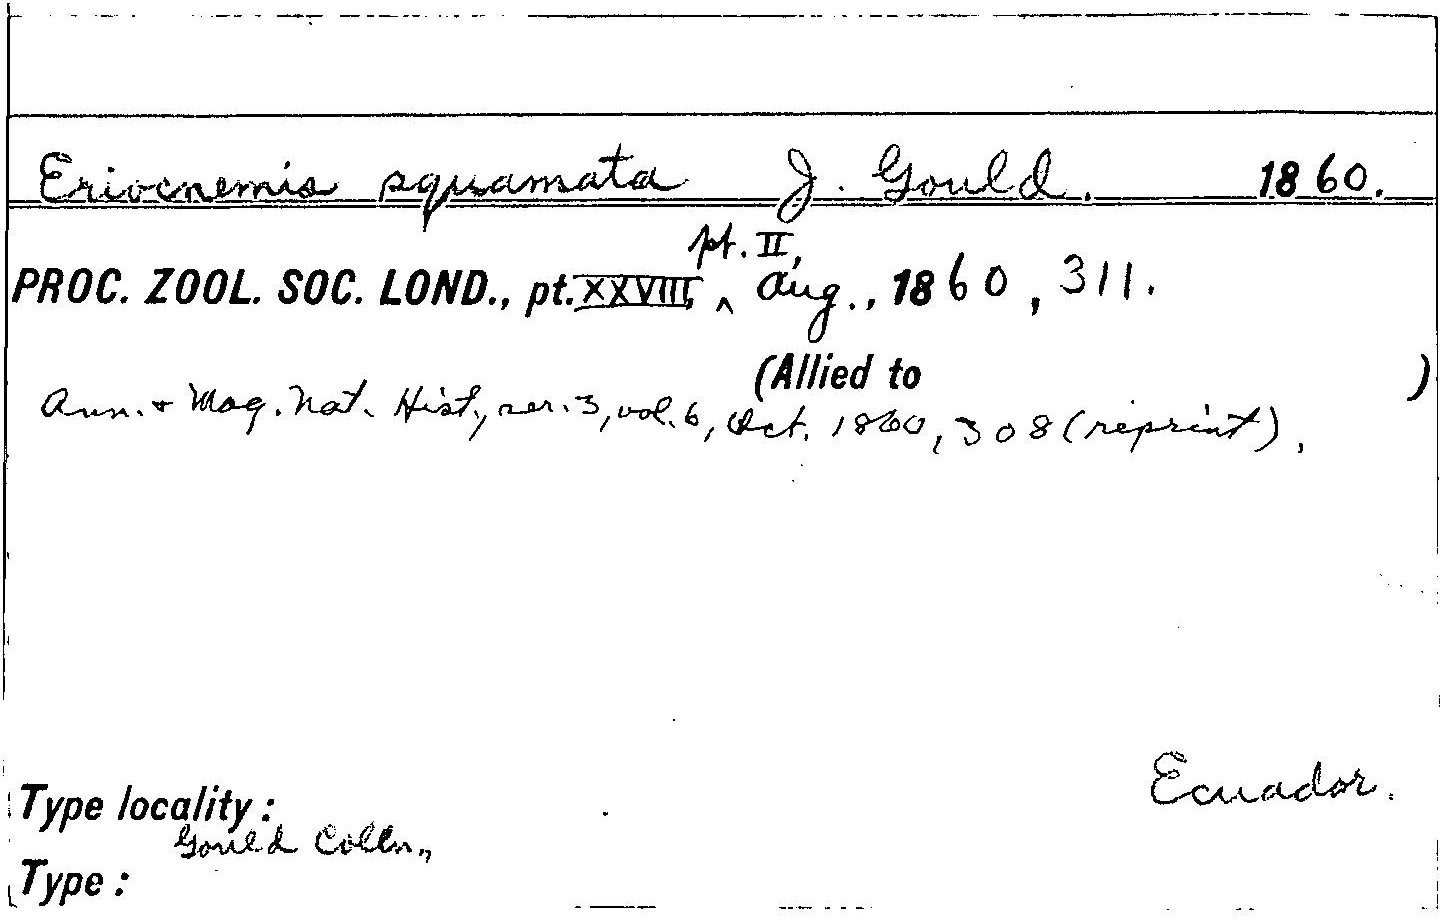 Eriocnemis squamata J. Gould. 1860.
pt. II,
PROC. ZOOL. SOC. LOND., pt. XXVIII, ^ Aug., 1860, 311.
(Allied to )
Ann. + Mag. Nat. Hist., ser. 3, vol. 6, Oct. 1860, 308 (reprint),
Ecuador.
Type locality:
Gould Colln.,
Type: